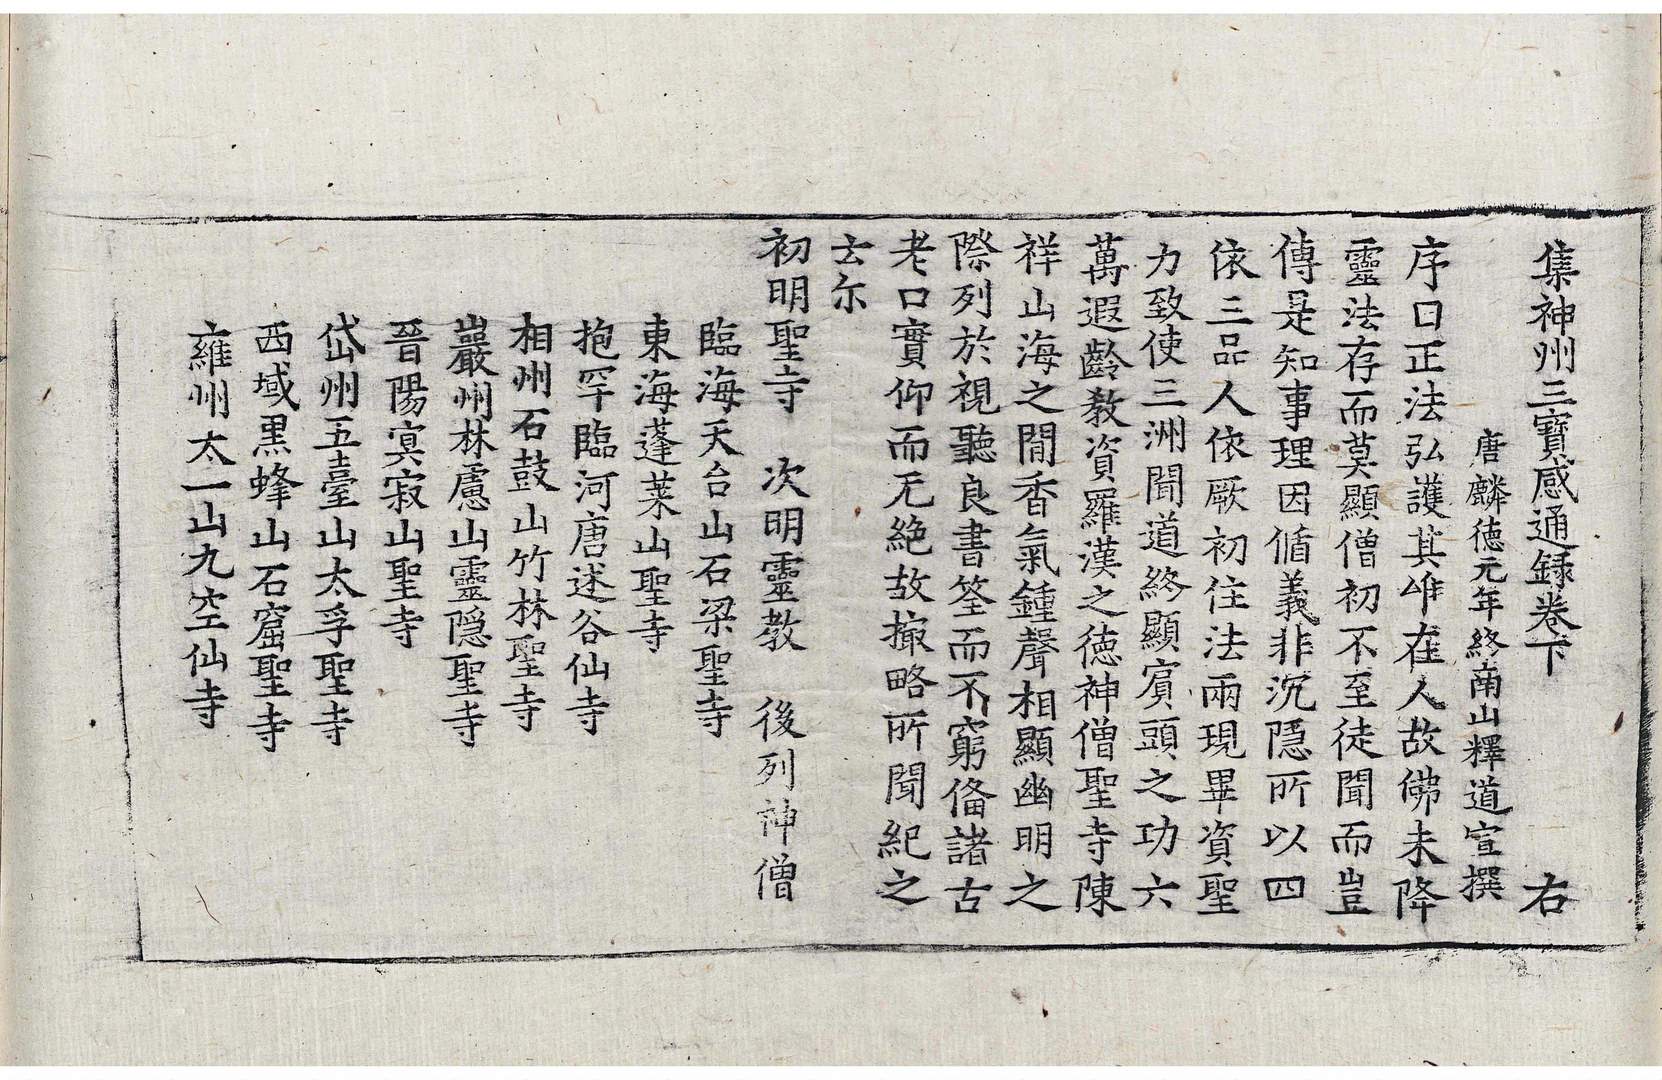 集神州三寶感通録卷下　右
唐麟德元年終南山釋道宣撰
序曰正法弘護其唯在人故佛未降
靈法存而莫顯僧初不至徒聞而豈
傳是知事理因循義非沉隱所以四
依三品人依厥初住法兩現畢資聖
力致使三洲聞道終顯賔頭之功六
萬遐齡敎資羅漢之德神僧聖寺陳
祥山海之間香氣鍾聲相顯幽明之
際列於視聽良書筌而不窮俻諸古
老口實仰而无絶故撮略所聞紀之
云尓
初明聖寺　次明靈敎　後列神僧
臨海天台山石梁聖寺
東海蓬萊山聖寺
抱罕臨河唐述谷仙寺
相州石鼓山竹林聖寺
巖州林慮山靈隱聖寺
晉陽冥寂山聖寺
岱州五臺山太孚聖寺
西域黒蜂山石窟聖寺
雍州太一山九空仙寺